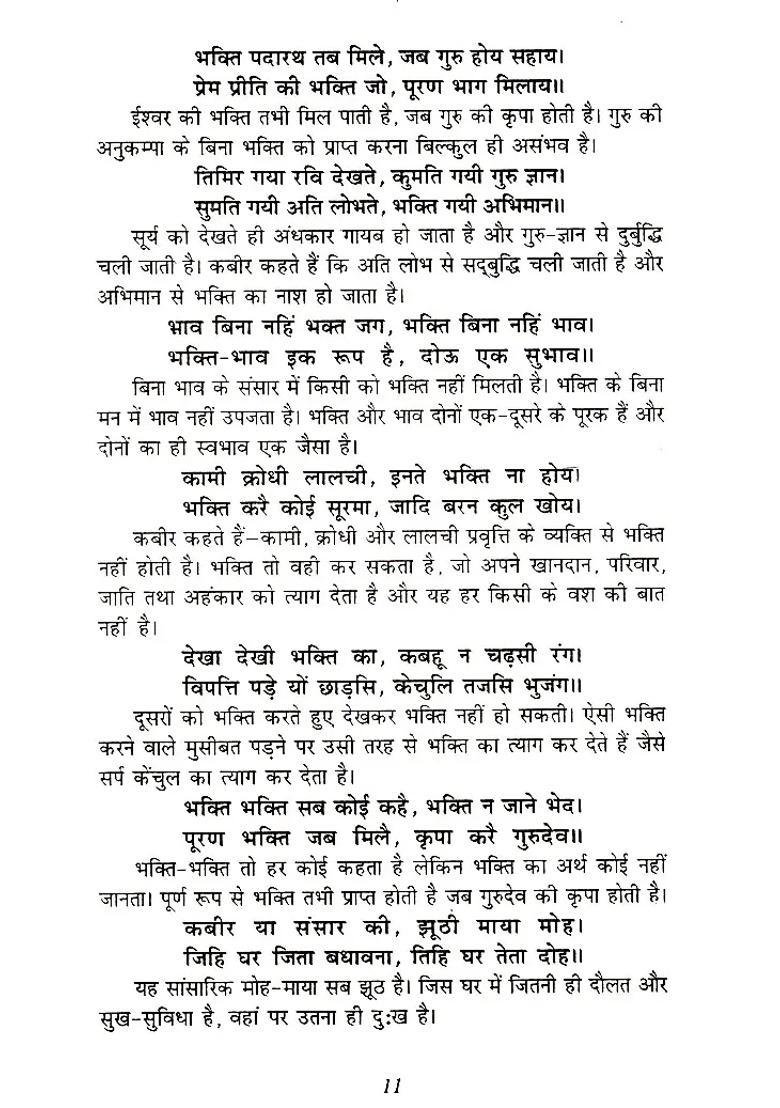 भक्ति पदारथ तब मिले, जब गुरु होय सहाय।
प्रेम प्रीति की भक्ति जो, पूरण भाग मिलाय॥
ईश्वर की भक्ति तभी मिल पाती है, जब गुरु की कृपा होती है। गुरु की
अनुकम्पा के बिना भक्ति को प्राप्त करना बिल्कुल ही असंभव है।
तिमिर गया रवि देखते, कुमति गयी गुरु ज्ञान।
सुमति गयी अति लोभते, भक्ति गयी अभिमान॥
सूर्य को देखते ही अंधकार गायब हो जाता है और गुरु-ज्ञान से दुर्बुद्धि
चली जाती है। कबीर कहते हैं कि अति लोभ से सद्बुद्धि चली जाती है और
अभिमान से भक्ति का नाश हो जाता है।
भाव बिना नहिं भक्त जग, भक्ति बिना नहिं भाव।
भक्ति-भाव इक रूप है, दोऊ एक सुभाव॥
बिना भाव के संसार में किसी को भक्ति नहीं मिलती है। भक्ति के बिना
मन में भाव नहीं उपजता है। भक्ति और भाव दोनों एक-दूसरे के पूरक हैं और
दोनों का ही स्वभाव एक जैसा है।
कामी क्रोधी लालची, इनते भक्ति ना होय।
भक्ति करै कोई सूरमा, जादि बरन कुल खोय।
कबीर कहते हैं–कामी, क्रोधी और लालची प्रवृत्ति के व्यक्ति से भक्ति
नहीं होती है। भक्ति तो वही कर सकता है, जो अपने खानदान, परिवार,
जाति तथा अहंकार को त्याग देता है और यह हर किसी के वश की बात
नहीं है।
देखा देखी भक्ति का, कबहू न चढ़सी रंग।
विपत्ति पड़े यों छाड़सि, केचुलि तजसि भुजंग॥
दूसरों को भक्ति करते हुए देखकर भक्ति नहीं हो सकती। ऐसी भक्ति
करने वाले मुसीबत पड़ने पर उसी तरह से भक्ति का त्याग कर देते हैं जैसे
सर्प केंचुल का त्याग कर देता है।
भक्ति भक्ति सब कोई कहै, भक्ति न जाने भेद।
पूरण भक्ति जब मिलै, कृपा करै गुरुदेव॥
भक्ति-भक्ति तो हर कोई कहता है लेकिन भक्ति का अर्थ कोई नहीं
जानता। पूर्ण रूप से भक्ति तभी प्राप्त होती है जब गुरुदेव की कृपा होती है।
कबीर या संसार की, झूठी माया मोह।
जिहि घर जिता बधावना, तिहि घर तेता दोह॥
यह सांसारिक मोह-माया सब झूठ है। जिस घर में जितनी ही दौलत और
सुख-सुविधा है, वहां पर उतना ही दुःख है।
11